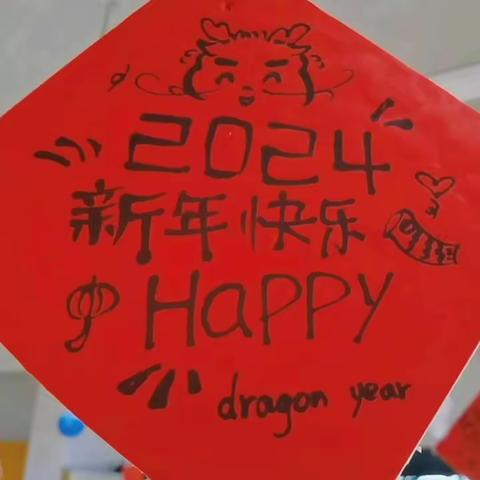 2024
新年快乐
HaPPY
dragon year